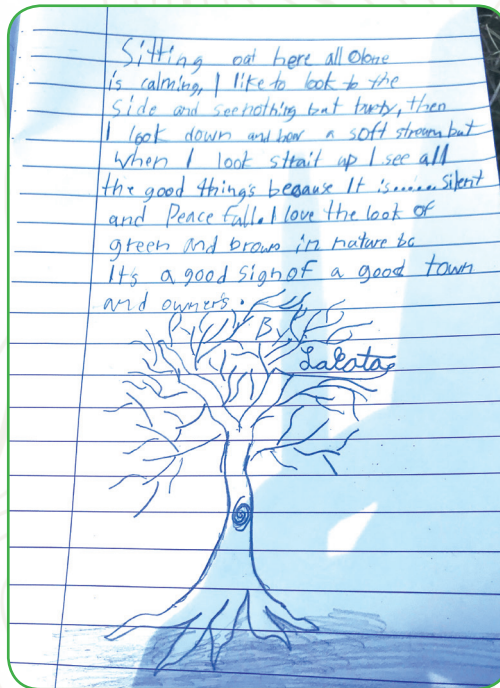 Sitting out here all alone
is calming, I like to look to the
side and see nothing but turty, then
I look down and hear a soft stream but
when I look strait up I see all
the good thing's because It is...... Silent
and Peace full. I love the look of
green and brown in nature bc
It's a good sign of a good town
and owner's.
By
Lakota